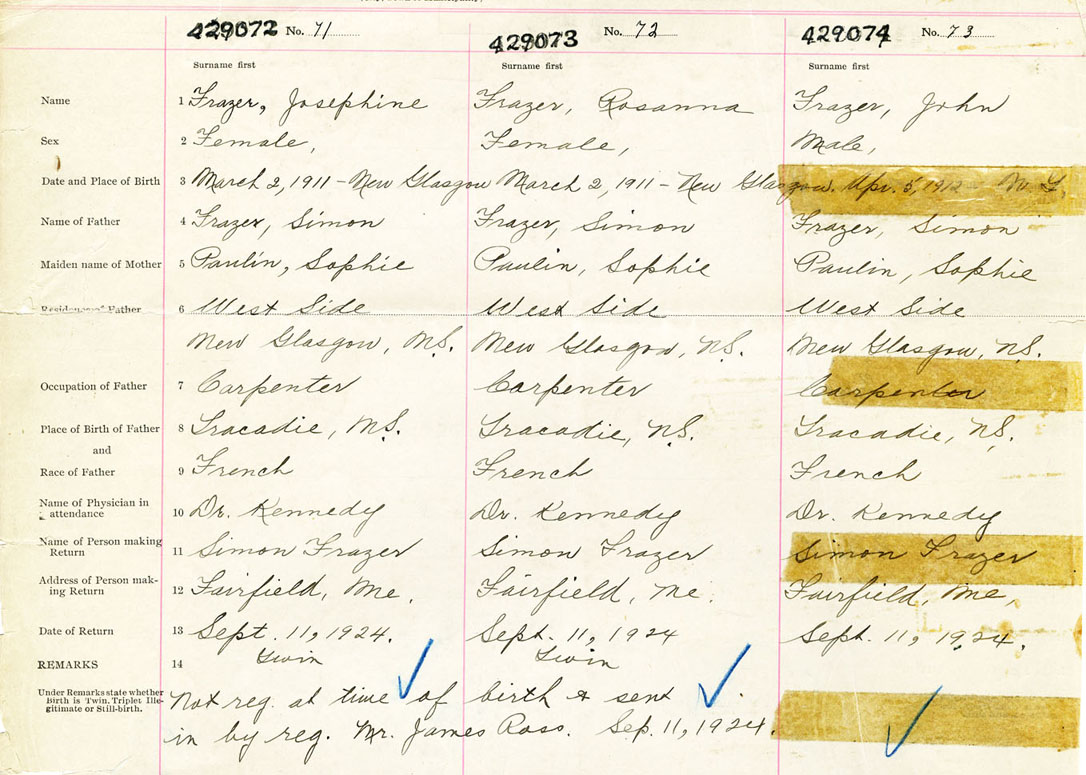 429072 No. 71 429073 No. 72 429074 No. 73
Surname first Surname first Surname first
Name 1 Frazer, Josephine Frazer, Rosanna Frazer, John
Sex 2 Female, Female, Male,
Date and Place of Birth 3 March 2, 1911 - New Glasgow March 2, 1911 - New Glasgow. Apr. 5, 1912 N. G.
Name of Father 4 Frazer, Simon Frazer, Simon Frazer, Simon
Maiden name of Mother 5 Paulin, Sophie Paulin, Sophie Paulin, Sophie
Residence of Father 6 West Side West Side West Side
New Glasgow, N.S. New Glasgow, N.S. New Glasgow, N.S.
Occupation of Father 7 Carpenter Carpenter Carpenter
Place of Birth of Father 8 Tracadie, N.S. Tracadie, N.S. Tracadie, N.S.
and
Race of Father 9 French French French
Name of Physician in
attendance 10 Dr. Kennedy Dr. Kennedy Dr. Kennedy
Name of Person making
Return 11 Simon Frazer Simon Frazer Simon Frazer
Address of Person mak-
ing Return 12 Fairfield, Me. Fairfield, Me. Fairfield, Me,
Date of Return 13 Sept. 11, 1924. Sept. 11, 1924 Sept. 11, 1924.
REMARKS 14 Twin Twin
Under Remarks state whether
Birth is Twin, Triplet Ille-
gitimate or Still-birth.
Not reg. at time of birth & sent
in by reg. Mr. James Ross. Sep. 11, 1924.